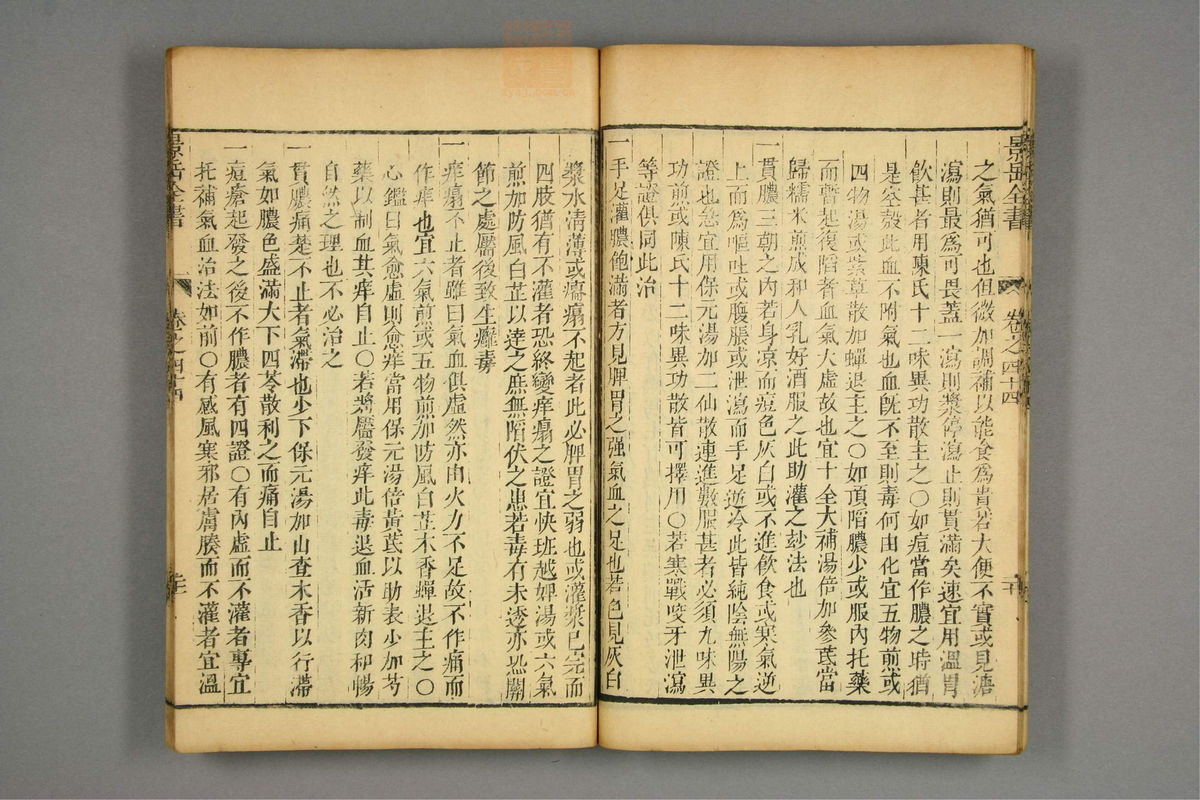 景岳全書
卷之四十四
之氣猶可也但微加調補以能食爲貴若大便不實或見溏
瀉則最爲可畏蓋一瀉則漿停瀉止則貫滿矣速宜用溫胃
飲甚者用陳氏十二味異功散主之○如痘當作膿之時猶
是空殼此血不附氣也血既不至則毒何由化宜五物煎或
四物湯或紫草散加蟬退主之○如頂陷膿少或服內托藥
而暫起復陷者血氣大虛故也宜十全大補湯倍加參芪當
歸糯米煎成和人乳好酒服之此助灌之玅法也
一貫膿三朝之內若身凉而痘色灰白或不進飲食或寒氣逆
上而爲嘔吐或腹脹或泄瀉而手足逆冷此皆純陰無陽之
證也急宜用保元湯加二仙散連進數服甚者必須九味異
功煎或陳氏十二味異功散皆可擇用○若寒戰咬牙泄瀉
等證俱同此治
一手足灌膿飽滿者方見脾胃之强氣血之足也若色見灰白
漿水清薄或癟塌不起者此必脾胃之弱也或灌漿已完而
四肢猶有不灌者恐終變痒塌之證宜快班越婢湯或六氣
煎加防風白芷以達之庶無陷伏之患若毒有未透亦恐關
節之處靨後致生癰毒
一痒塌不止者雖曰氣血俱虛然亦由火力不足故不作痛而
作痒也宜六氣煎或五物煎加防風白芷木香蟬退主之○
心鑑曰氣愈虛則愈痒當用保元湯倍黃芪以助表少加芍
藥以制血其痒自止○若將靨發痒此毒退血活新肉和暢
自然之理也不必治之
一貫膿痛楚不止者氣滯也少下保元湯加山查木香以行滯
氣如膿色盛滿大下四苓散利之而痛自止
一痘瘡起發之後不作膿者有四證○有內虛而不灌者專宜
托補氣血治法如前○有感風寒邪居膚腠而不灌者宜溫
景岳全書
卷之四十四